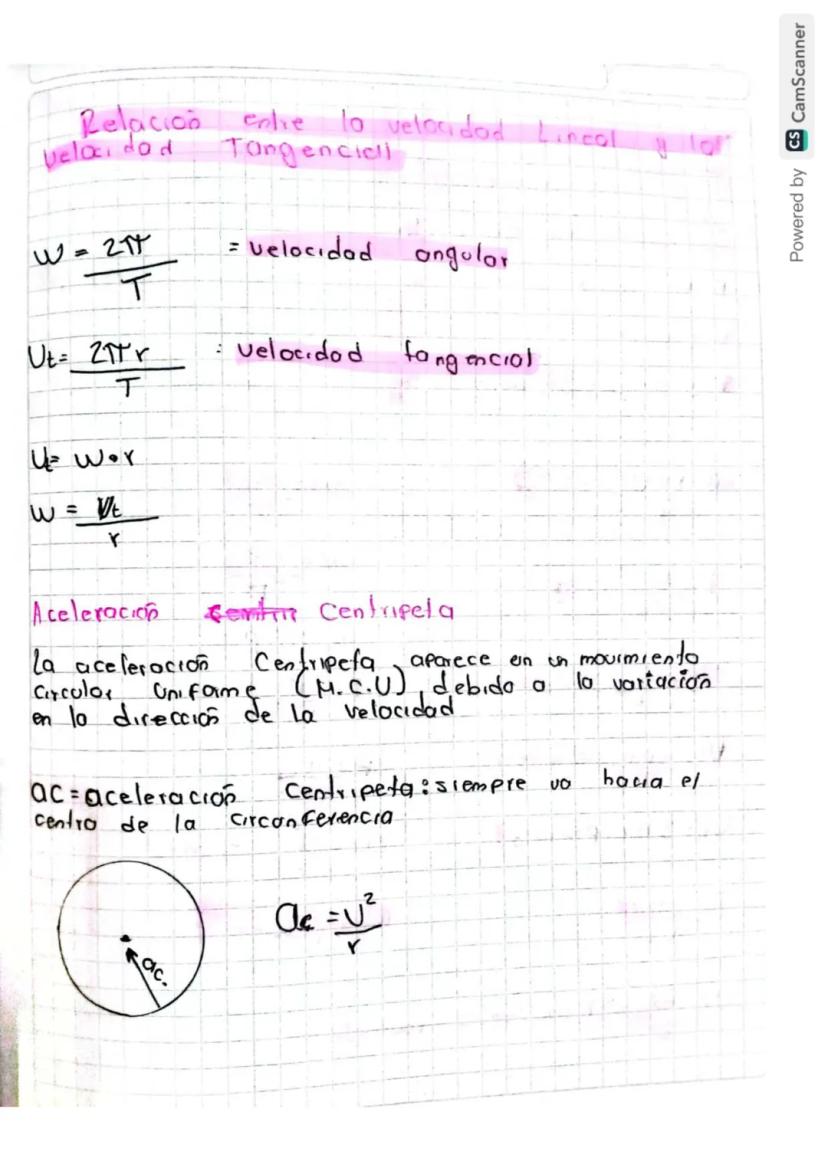 Relación entre la velocidad Lineal y la
velocidad Tangencial
W = 2π/T = velocidad angular
Vt = 2πr/T : velocidad tangencial
Vt = W•r
W = Vt/r
Aceleración Centripeta
La aceleración Centripeta, aparece en un movimiento
circular uniforme (M.C.U), debido a la variación
en la dirección de la velocidad
ac = aceleración Centripeta: siempre va hacia el
centro de la circonferencia
ac = v²/r
ac.
Powered by CS CamScanner